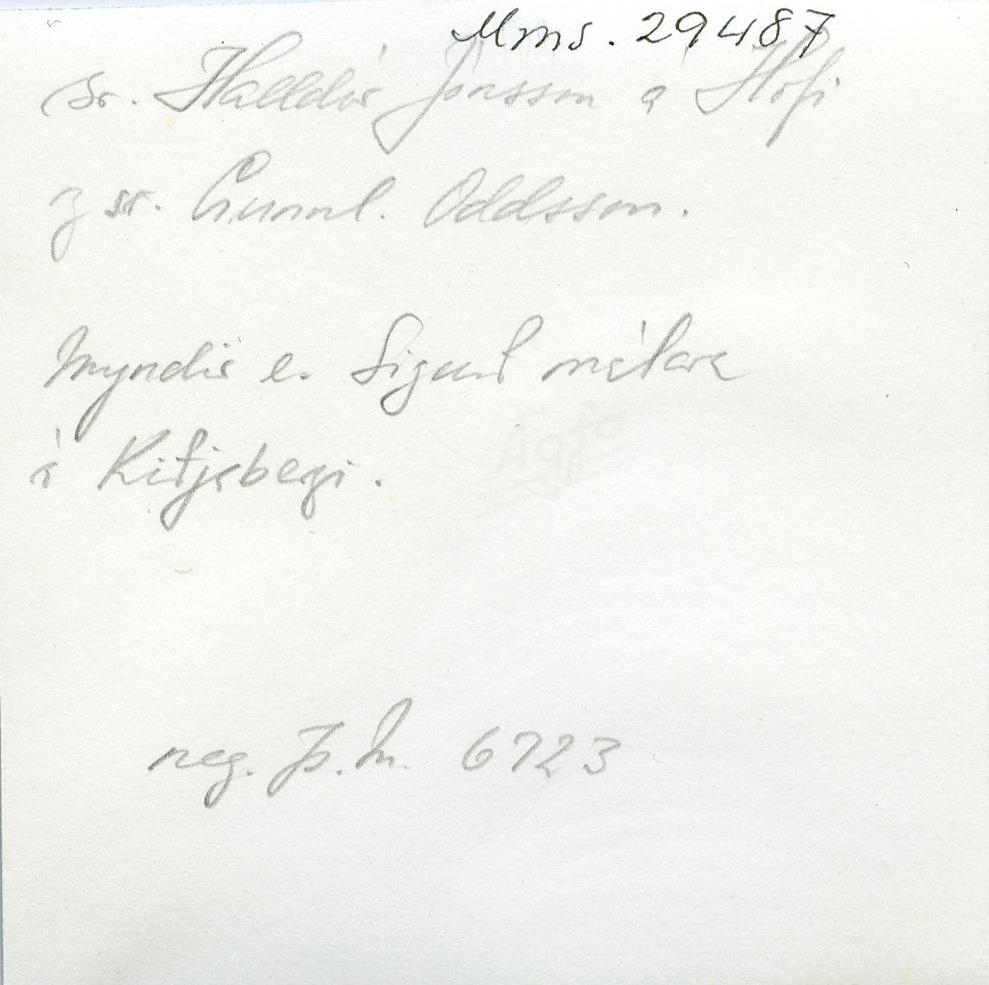 Mms. 29487
Sr. Halldór Jónsson á Hofi
og sr. Gunnl. Oddsson.
Myndir e. Sigurð málara
í Kífsjabergi.
neg. Þ.M. 6723